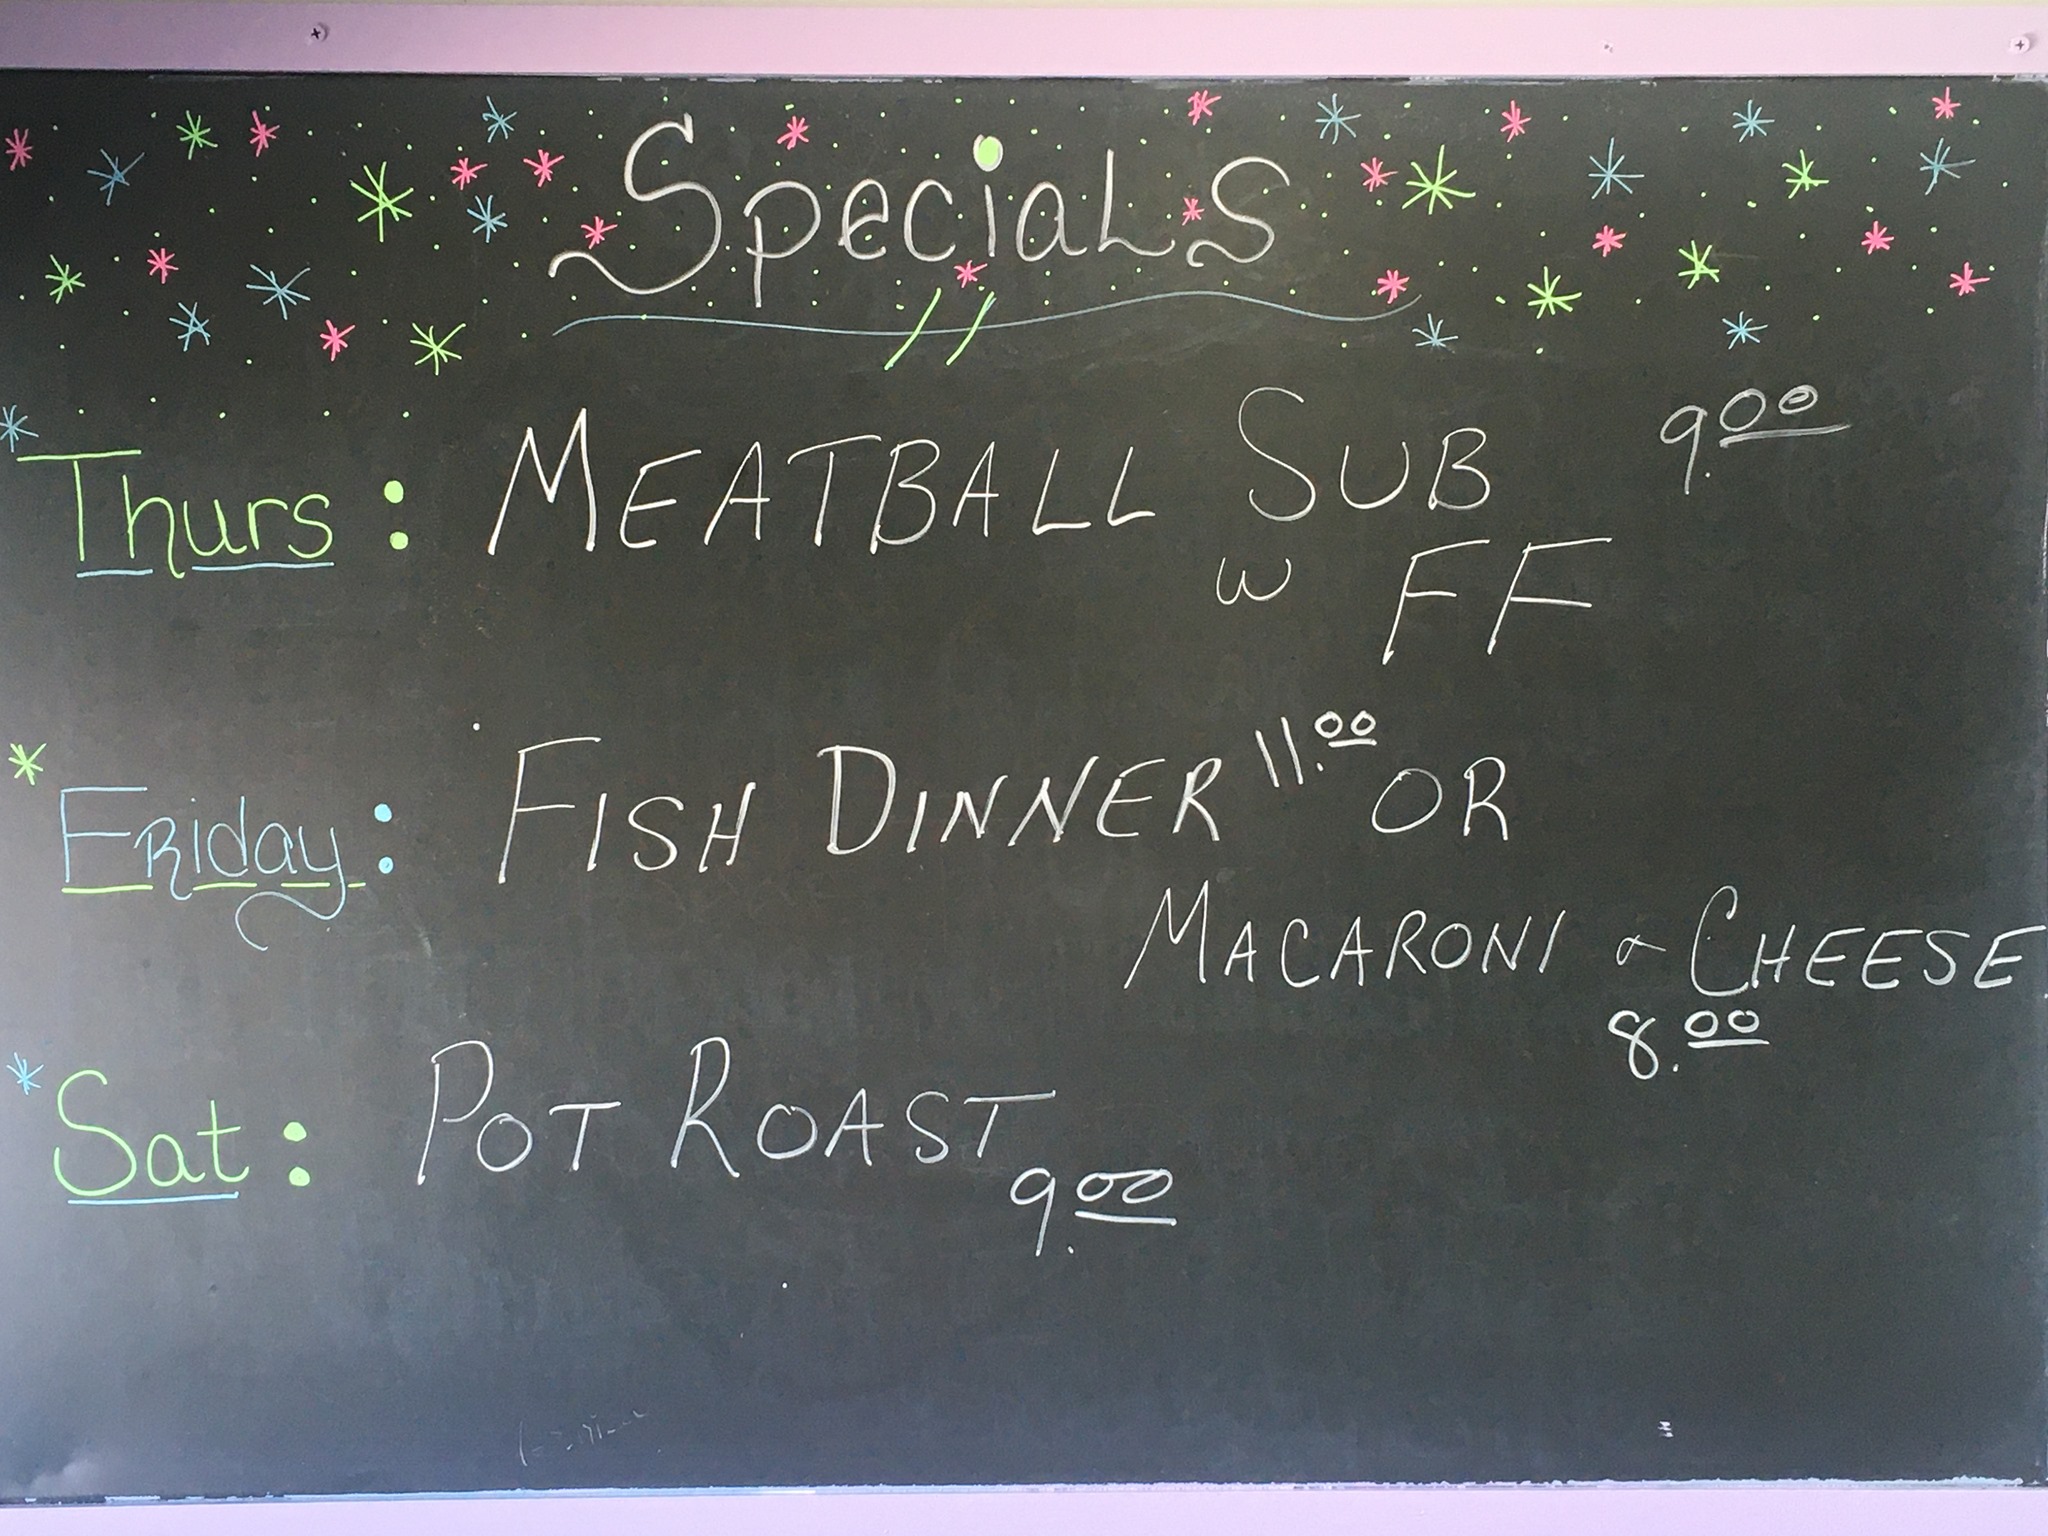 Specials
Thurs: MEATBALL SUB 9.00
w FF
Friday: FISH DINNER 11.00 OR
MACARONI & CHEESE
8.00
Sat: POT ROAST
9.00